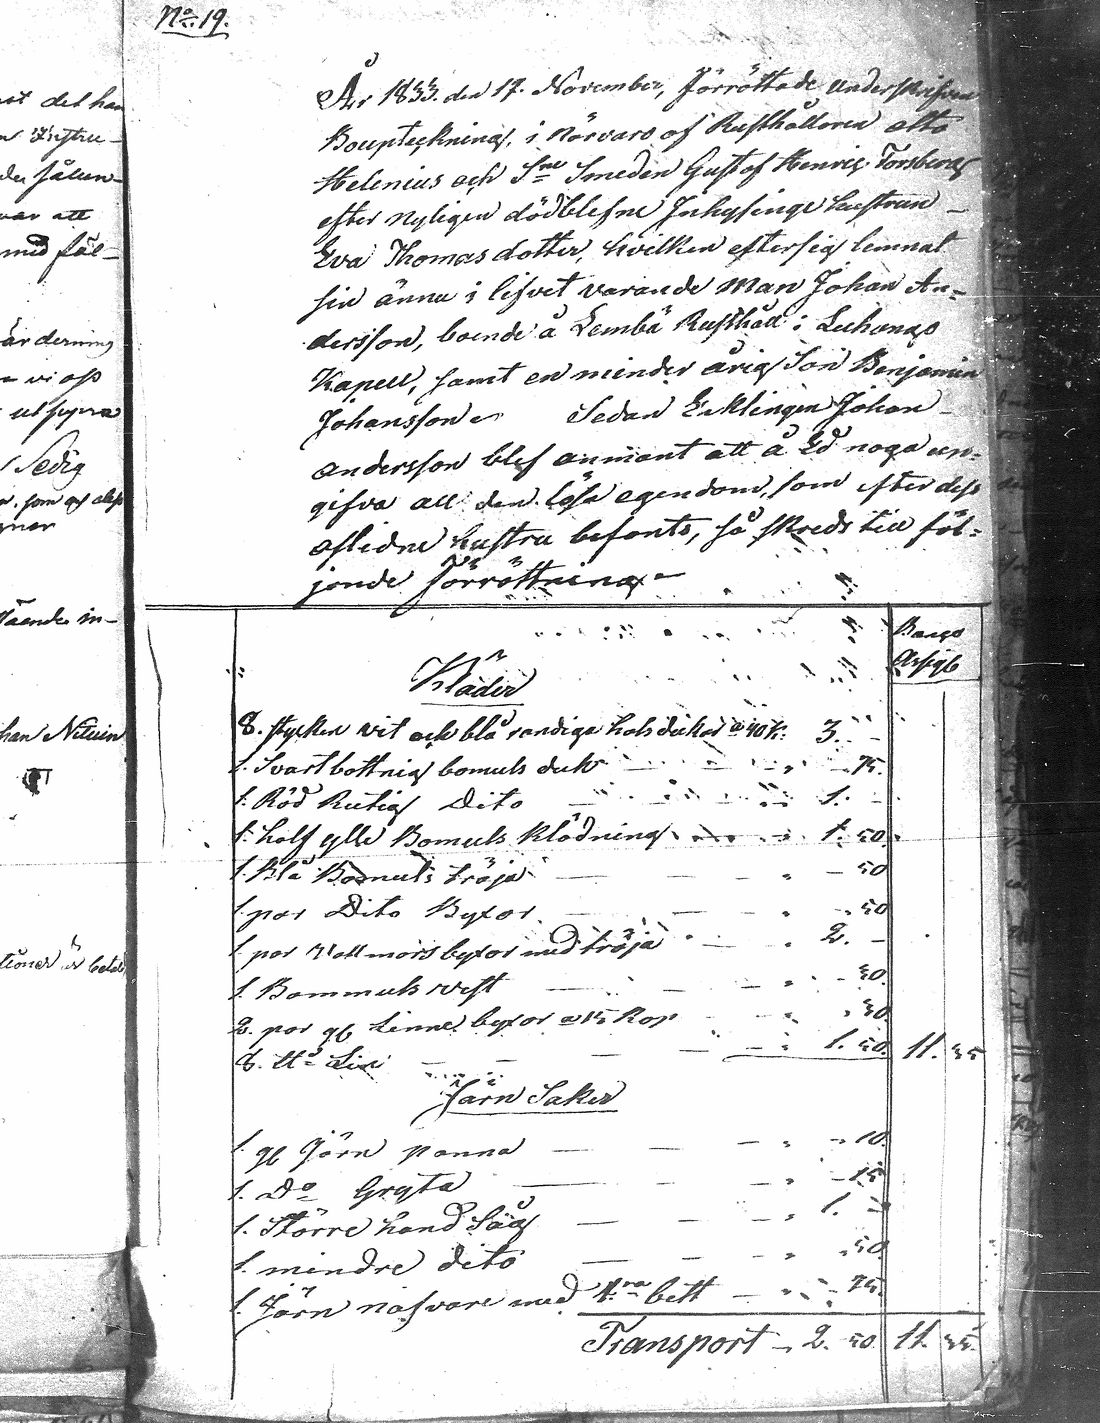 No 19.
År 1833. den 17. November, Förrättade underskrifven
Bouptekning, i närvaro af Rusthållaren Otto
Helenius och Sne Smeden Gustaf Henrig Torsberg
efter nyligen dödblefne Inhysinge hustrun
Eva Thomas dotter, hvilken eftersig lemnat
sin ännu i lifvet varande Man Johan An=
dersson, boende å Lembå Rusthåll i
Kapell, samt en minder årig Son Benjamin
Johansson. Sedan Enklingen Johan
andersson blef anmant att å Ed noga an=
gifva all den lösa egendom, som efter dess
aflidne hustru befants, så skreds till föl=
jande Förrättning
Banco
Assign
Kläder
8. stycken vit och blå randiga halsdukar a 40 K. 3. -
1. Svartbottnig bomuls duk - 75.
1. Röd Rutig Dito 1. -
1. half ylle Bomuls Klädning 1. 50.
1. Blå Bomuls tröja - 50
1. par Dito Byxor - 50
1. par Vallmars byxor med tröja 2. -
1. Bommuls vest - 50.
2. par gl Linne byxor a 15 Kop - 30.
8. Lin 1. 50. 11. 55
Järn Saker
1. gl Järn panna - 10.
1. Do Gryta - 15
1. Större hand Såg 1. -
1. mindre dito - 50
1. Järn nafvare med 4ra bett - 75.
Transport - 2. 50. 11. 55.
mot det han
följan-
var att
med föl-
värdering
vi oss
utsyna
Sedig
som
stående in-
han